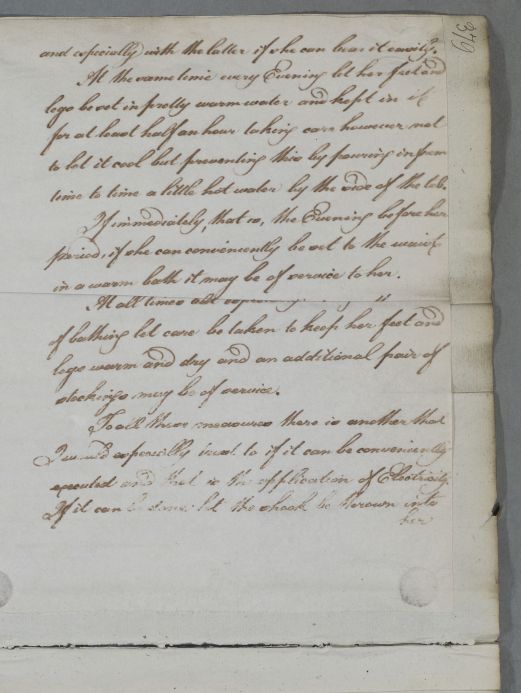 349
and especially with the latter if she can bear it easily.
At the same time every Evening let her feet and
legs be set in pretty warm water and kept in it
for at least half an hour taking care however not
to let it cool but preventing this by pouring in from
time to time a little hot water by the side of the tub.
If immediately, that is, the Evening before her
period, if she can conveniently be set to the waist
in a warm bath it may be of service to her.
At all times and
of bathing let care be taken to keep her feet and
legs warm and dry and an additional pair of
stockings may be of service.
To all these measures there is another that
I would especially trust to if it can be conveniently
executed and that is the application of Electricity
If it can be done; let the shock be thrown into
her